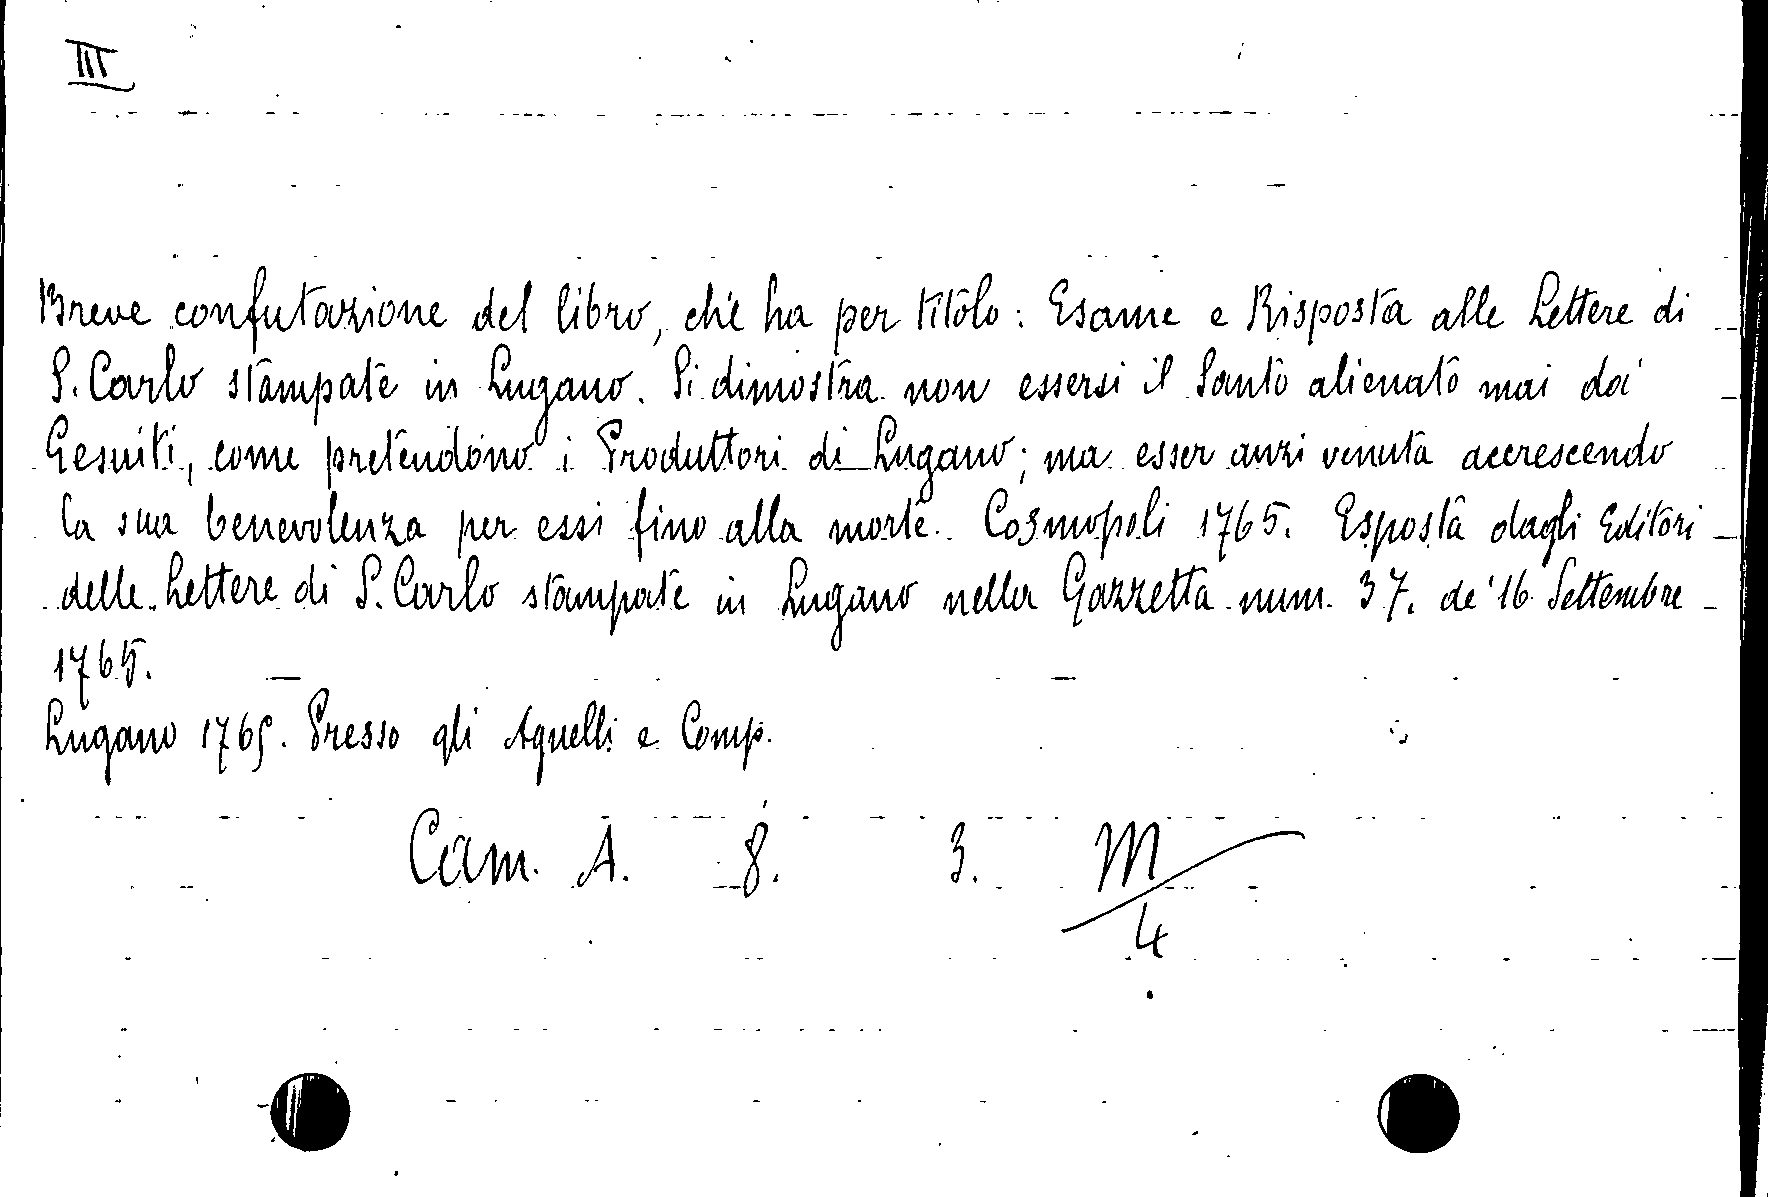 III
Breve confutazione del libro, che ha per titolo: Esame e Risposta alle Lettere di
S. Carlo stampate in Lugano. Si dimostra non essersi il Santo alienato mai dai
Gesuiti, come pretendono i Produttori di Lugano; ma esser anzi venuta accrescendo
la sua benevolenza per essi fino alla morte. Cosmopoli 1765. Esposta dagli Editori
delle Lettere di S. Carlo stampate in Lugano nella Gazzetta num. 37. de' 16 Settembre
1765.
Lugano 1765. Presso gli Agnelli e Comp.
Cam. A. 8. 3. M/4